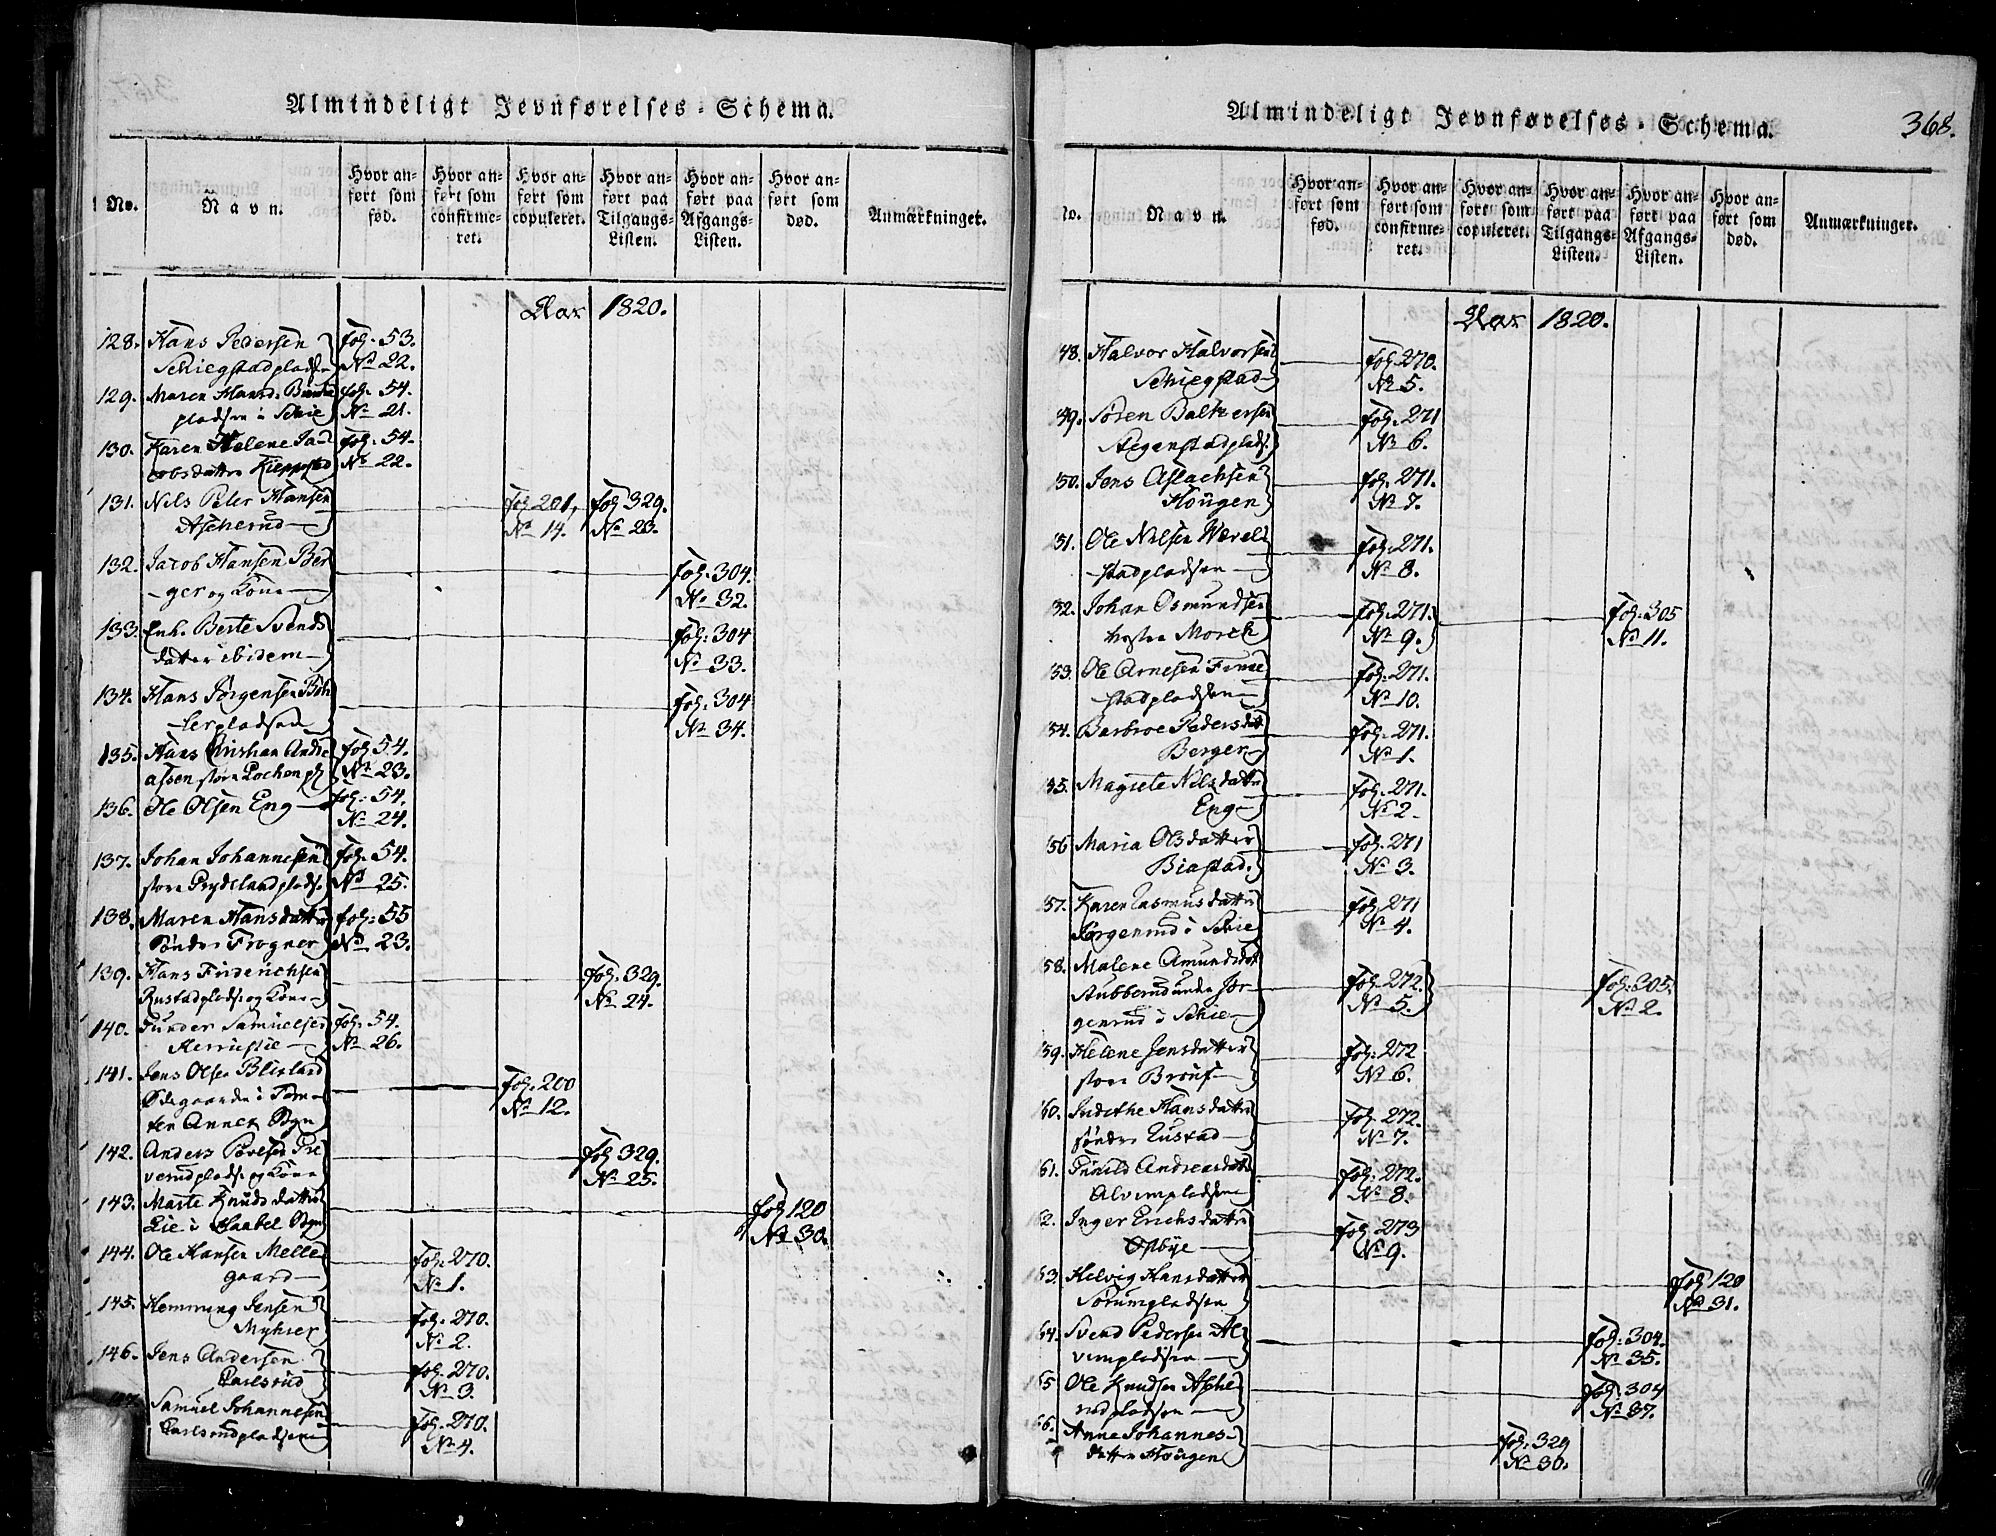 Almindeligt Jevnførelses-Schema.
No.
Navn.
Hvor anført som fød.
Hvor anført som confirmeret.
Hvor anført som copuleret.
Hvor anført paa Tilgangs-Listen.
Hvor anført paa Afgangs-Listen.
Hvor anført som død.
Anmærkninger.
Aar 1820.
128. Hans Pedersen fol. 53.
Schiegstadpladsen No 22.
129. Maren Hansd. fol. 54.
pladsen i Schie No 21.
130. Karen Helene Jac- fol. 54.
obsdatter Kieppestad No 22.
131. Nils Peter Hansen fol 201, fol. 329.
Ascherud No 14. No 23.
132. Jacob Hansen Ber- fol. 304.
ger og Kone No 32.
133. Enk. Berte Svends- fol. 304
datter ibidem No 33.
134. Hans Jørgensen Bøh- fol. 304
lerpladsen No 34.
135. Hans Christian Andre- fol. 54.
asen store No 23.
136. Ole Olsen Eng fol. 54.
No 24.
137. Johan Johannesen fol. 54.
store Prydslandpladse No 25.
138. Maren Hansdatter fol. 55
søndre Frogner No 23.
139. Hans Friderichsen fol. 329.
Rustadpladse og Kone No 24.
140. Gunder Samuelsen fol. 54.
No 26.
141. Jens Olsen fol. 200
Ødegaarden i Tom- No 12.
ten Annex Sogn
142. Anders Povelsen Pre- fol 329.
verudpladse og Kone No 25.
143. Marte Knudsdatter fol 120
Lie i Haabel Sogn No 30.
144. Ole Hansen Melle- fol. 270.
gaard No 1.
145. Hemming Jensen fol. 270.
Myhrer No 2.
146. Jens Andersen fol. 270.
Carlsrud No 3.
147. Samuel Johannesen fol. 270.
Carlsrudpladsen No 4.
Almindeligt Jevnførelses-Schema.
368.
No.
Navn.
Hvor anført som fød.
Hvor anført som confirmeret.
Hvor anført som copuleret.
Hvor anført paa Tilgangs-Listen.
Hvor anført paa Afgangs-Listen.
Hvor anført som død.
Anmærkninger.
Aar 1820.
48. Halvor Halvorsen fol. 270.
Schiegstad No 5.
49. Søren Baltzersen fol. 271
Ægenstadpladse No 6.
50. Jens Aslachsen fol. 271.
Hougen No 7.
51. Ole Nilsen Wevel- fol. 271.
stadpladsen No 8.
52. Johan Osmundsen fol. 271. fol. 305
Morch No 9. No 11.
53. Ole Arnesen Finne- fol. 271.
stadpladsen No 10.
54. Barbroe Pedersdatt fol. 271.
Berger No 1.
55. Magrete Nilsdatter fol. 271.
Eng No 2.
56 Maria Olsdatter fol. 271
Biastad. No 3.
57. Karen Rasmusdatter fol. 271
Jørgenrud i Schie No 4.
58. Malene Amundsdatt fol. 272. fol. 305.
Stubberud under Jør- No 5. No 2.
genrud i Schie
59. Helene Jensdatter fol. 272
store No 6.
60. Indethe Hansdatter fol. 272.
søndre Rustad No 7.
61. Gunild Andreasdatt fol. 272.
Alvimpladsen No 8.
62. Inger Erichsdatter fol. 273
Opbye No 9.
63. Helvig Hansdatter fol. 120
Sørumpladsen No 31.
64. Svend Pedersen Al- fol. 304.
vimpladsen No 35.
65 Ole Knudsen Asche- fol. 304
rudpladsen No 37.
66. Anne Johannes- fol. 329
datter Hougen No 30.